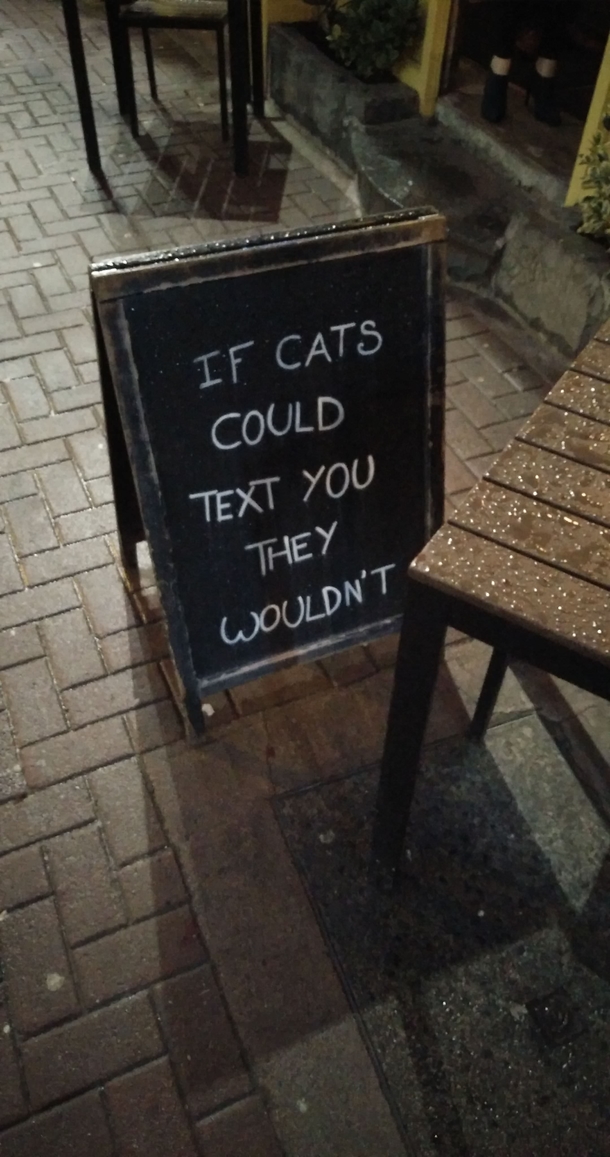 IF CATS
COULD
TEXT YOU
THEY
WOULDN'T